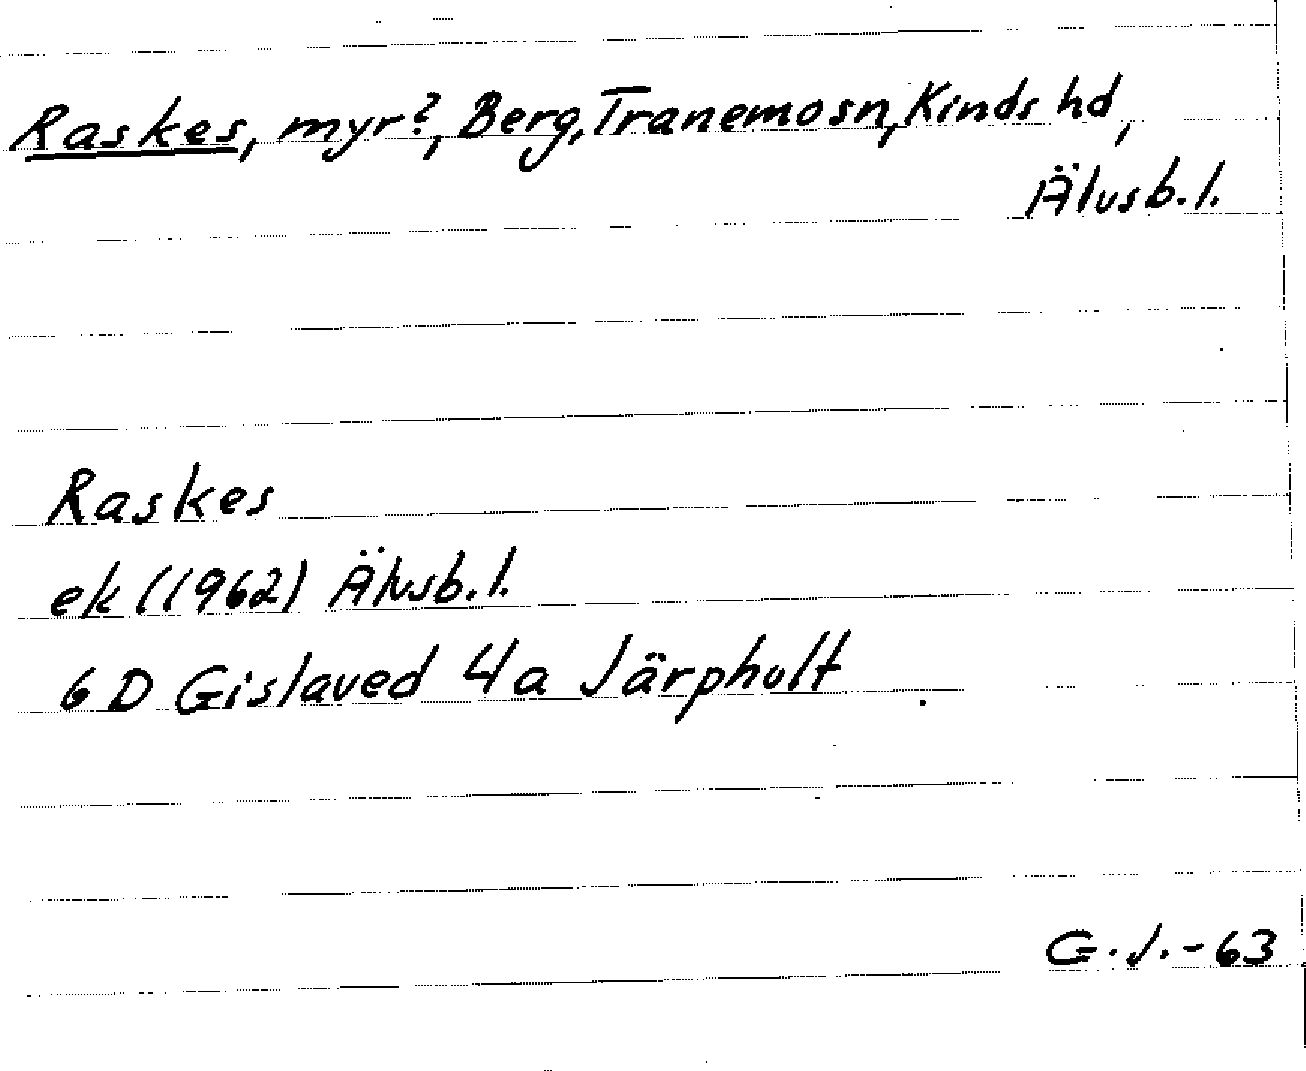 Raskes, myr?, Berg, Tranemo sn, Kinds hd,
Älvsb. l.
Raskes
ek (1962) Älvsb. l.
6 D Gislaved 4 a Järpholt
G. J. - 63